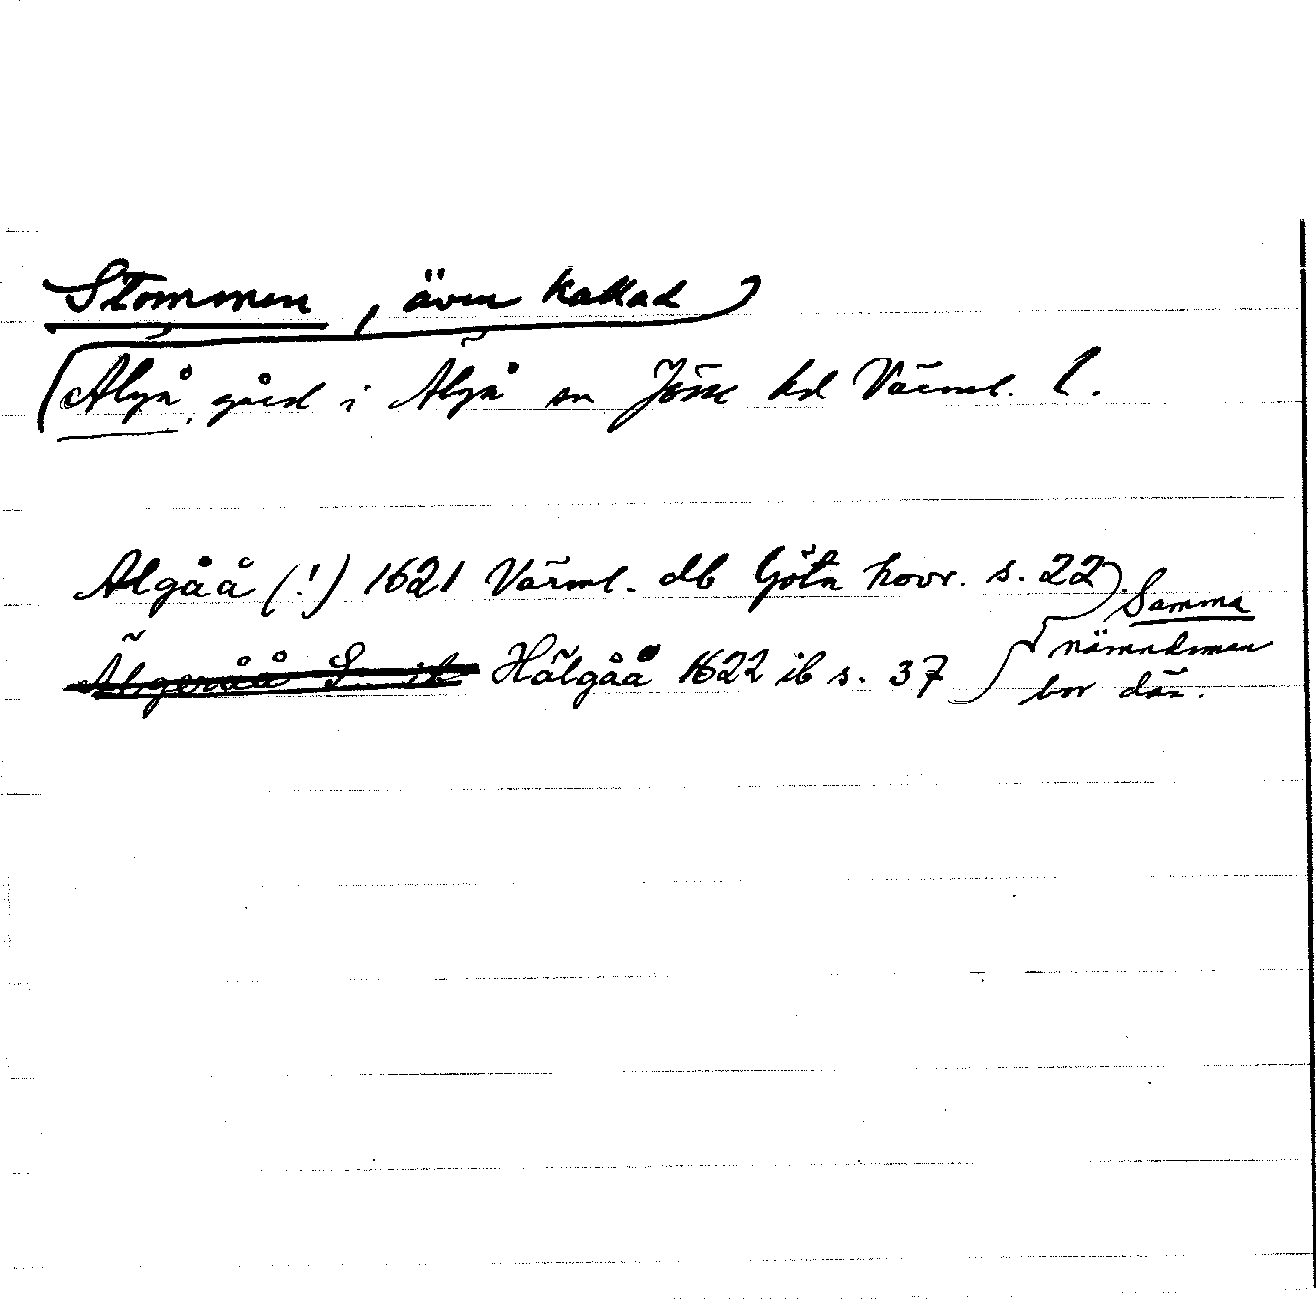 Stommen, även kallad
Älgå, gård i Älgå sn Jösse hd Värml. l.
Algåå (!) 1621 Värml. db Göta hovr. s. 22
Hälgåå 1622 ib s. 37
Samma
nämndeman
bor där.